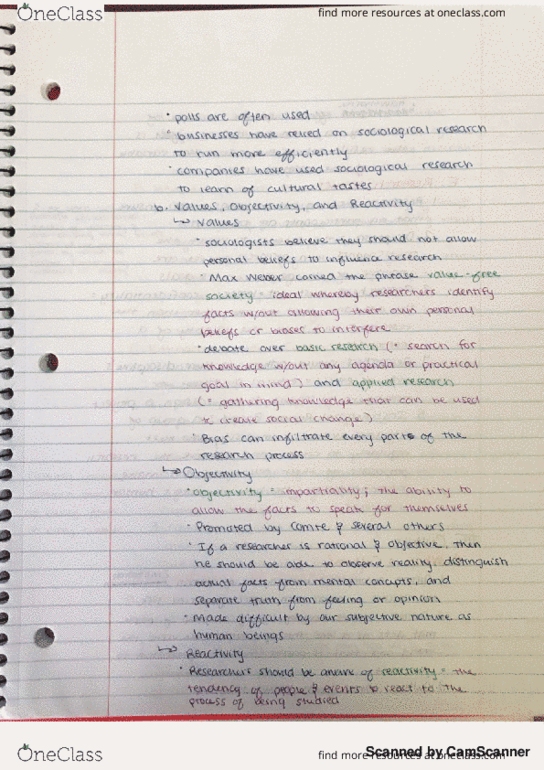 OneClass
find more resources at oneclass.com
• polls are often used
• businesses have relied on sociological research
to run more efficiently
• companies have used sociological research
to learn of cultural tastes
b. Values, Objectivity, and Reactivity
↳ Values
• sociologists believe they should not allow
personal beliefs to influence research
• Max Weber coined the phrase value-free
society: ideal whereby researchers identify
facts w/out allowing their own personal
beliefs or biases to interfere
• debate over basic research (: search for
knowledge w/out any agenda or practical
goal in mind) and applied research
(: gathering knowledge that can be used
to create social change)
• Bias can infiltrate every part of the
research process
↳ Objectivity
• objectivity: impartiality; the ability to
allow the facts to speak for themselves
• Promoted by Comte & several others
• If a researcher is rational & objective, then
he should be able to observe reality, distinguish
actual facts from mental concepts, and
separate truth from feeling or opinion
• Made difficult by our subjective nature as
human beings
↳ Reactivity
• Researchers should be aware of reactivity: the
tendency of people & events to react to the
process of being studied
OneClass
find more resources at oneclass.com
Scanned by CamScanner